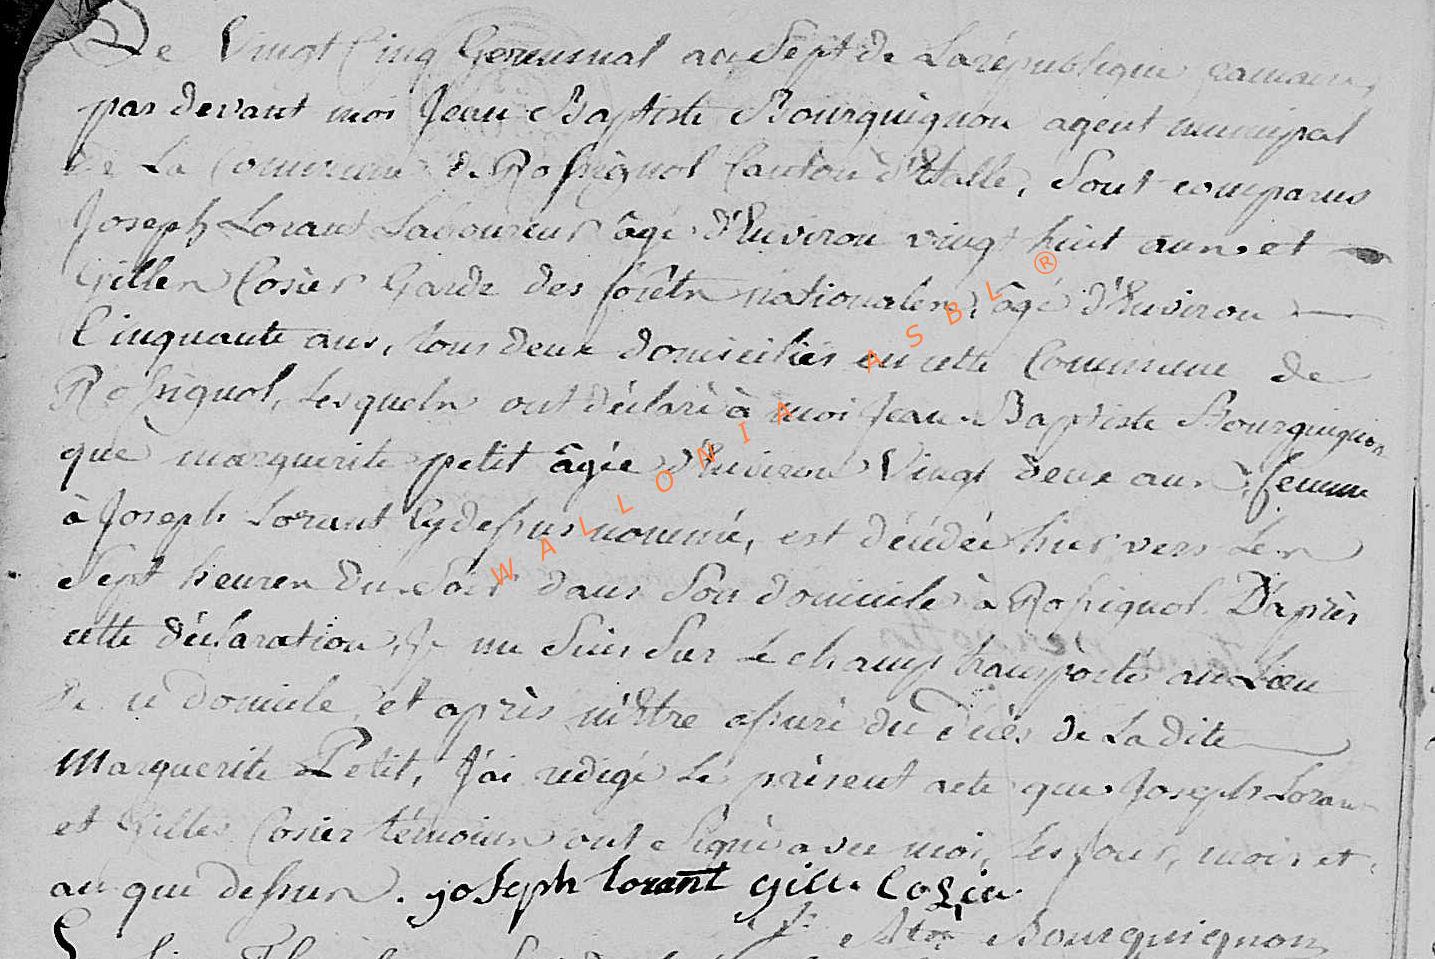 De Vingt Cinq Germinal an Sept de La république
par devant moi Jean Baptiste Bourguignon agent municipal
de La Commune de Rossignol Canton d'Etalle, Sont comparus
Joseph Lorant Laboureur âgé d'Environ vingt huit ans et
Gilles Cosier Garde des forêts nationales, âgé d'Environ
Cinquante ans, tous deux domiciliés en cette Commune de
Rossignol, Lesquels ont déclaré à moi Jean Baptiste Bourguignon
que marguerite petit âgée d'Environ Vingt deux ans, femme
à Joseph Lorant Cy dessus nommé, est décédée hier vers Les
Sept heures du Soir dans Son domicile à Rossignol. D'après
cette déclaration, Je me Suis Sur le champ transporté au Lieu
de ce domicile, et après m'Etre assuré du décès de La dite
Marguerite Petit, J'ai redigé Le présent acte que Joseph Lorant
et Gilles Cosier témoins ont Signé avec moi, Les Jour, mois et
an que dessus. joseph lorant gille Cosier
J. Bte Bourguignon
WALLONIA ASBL ®